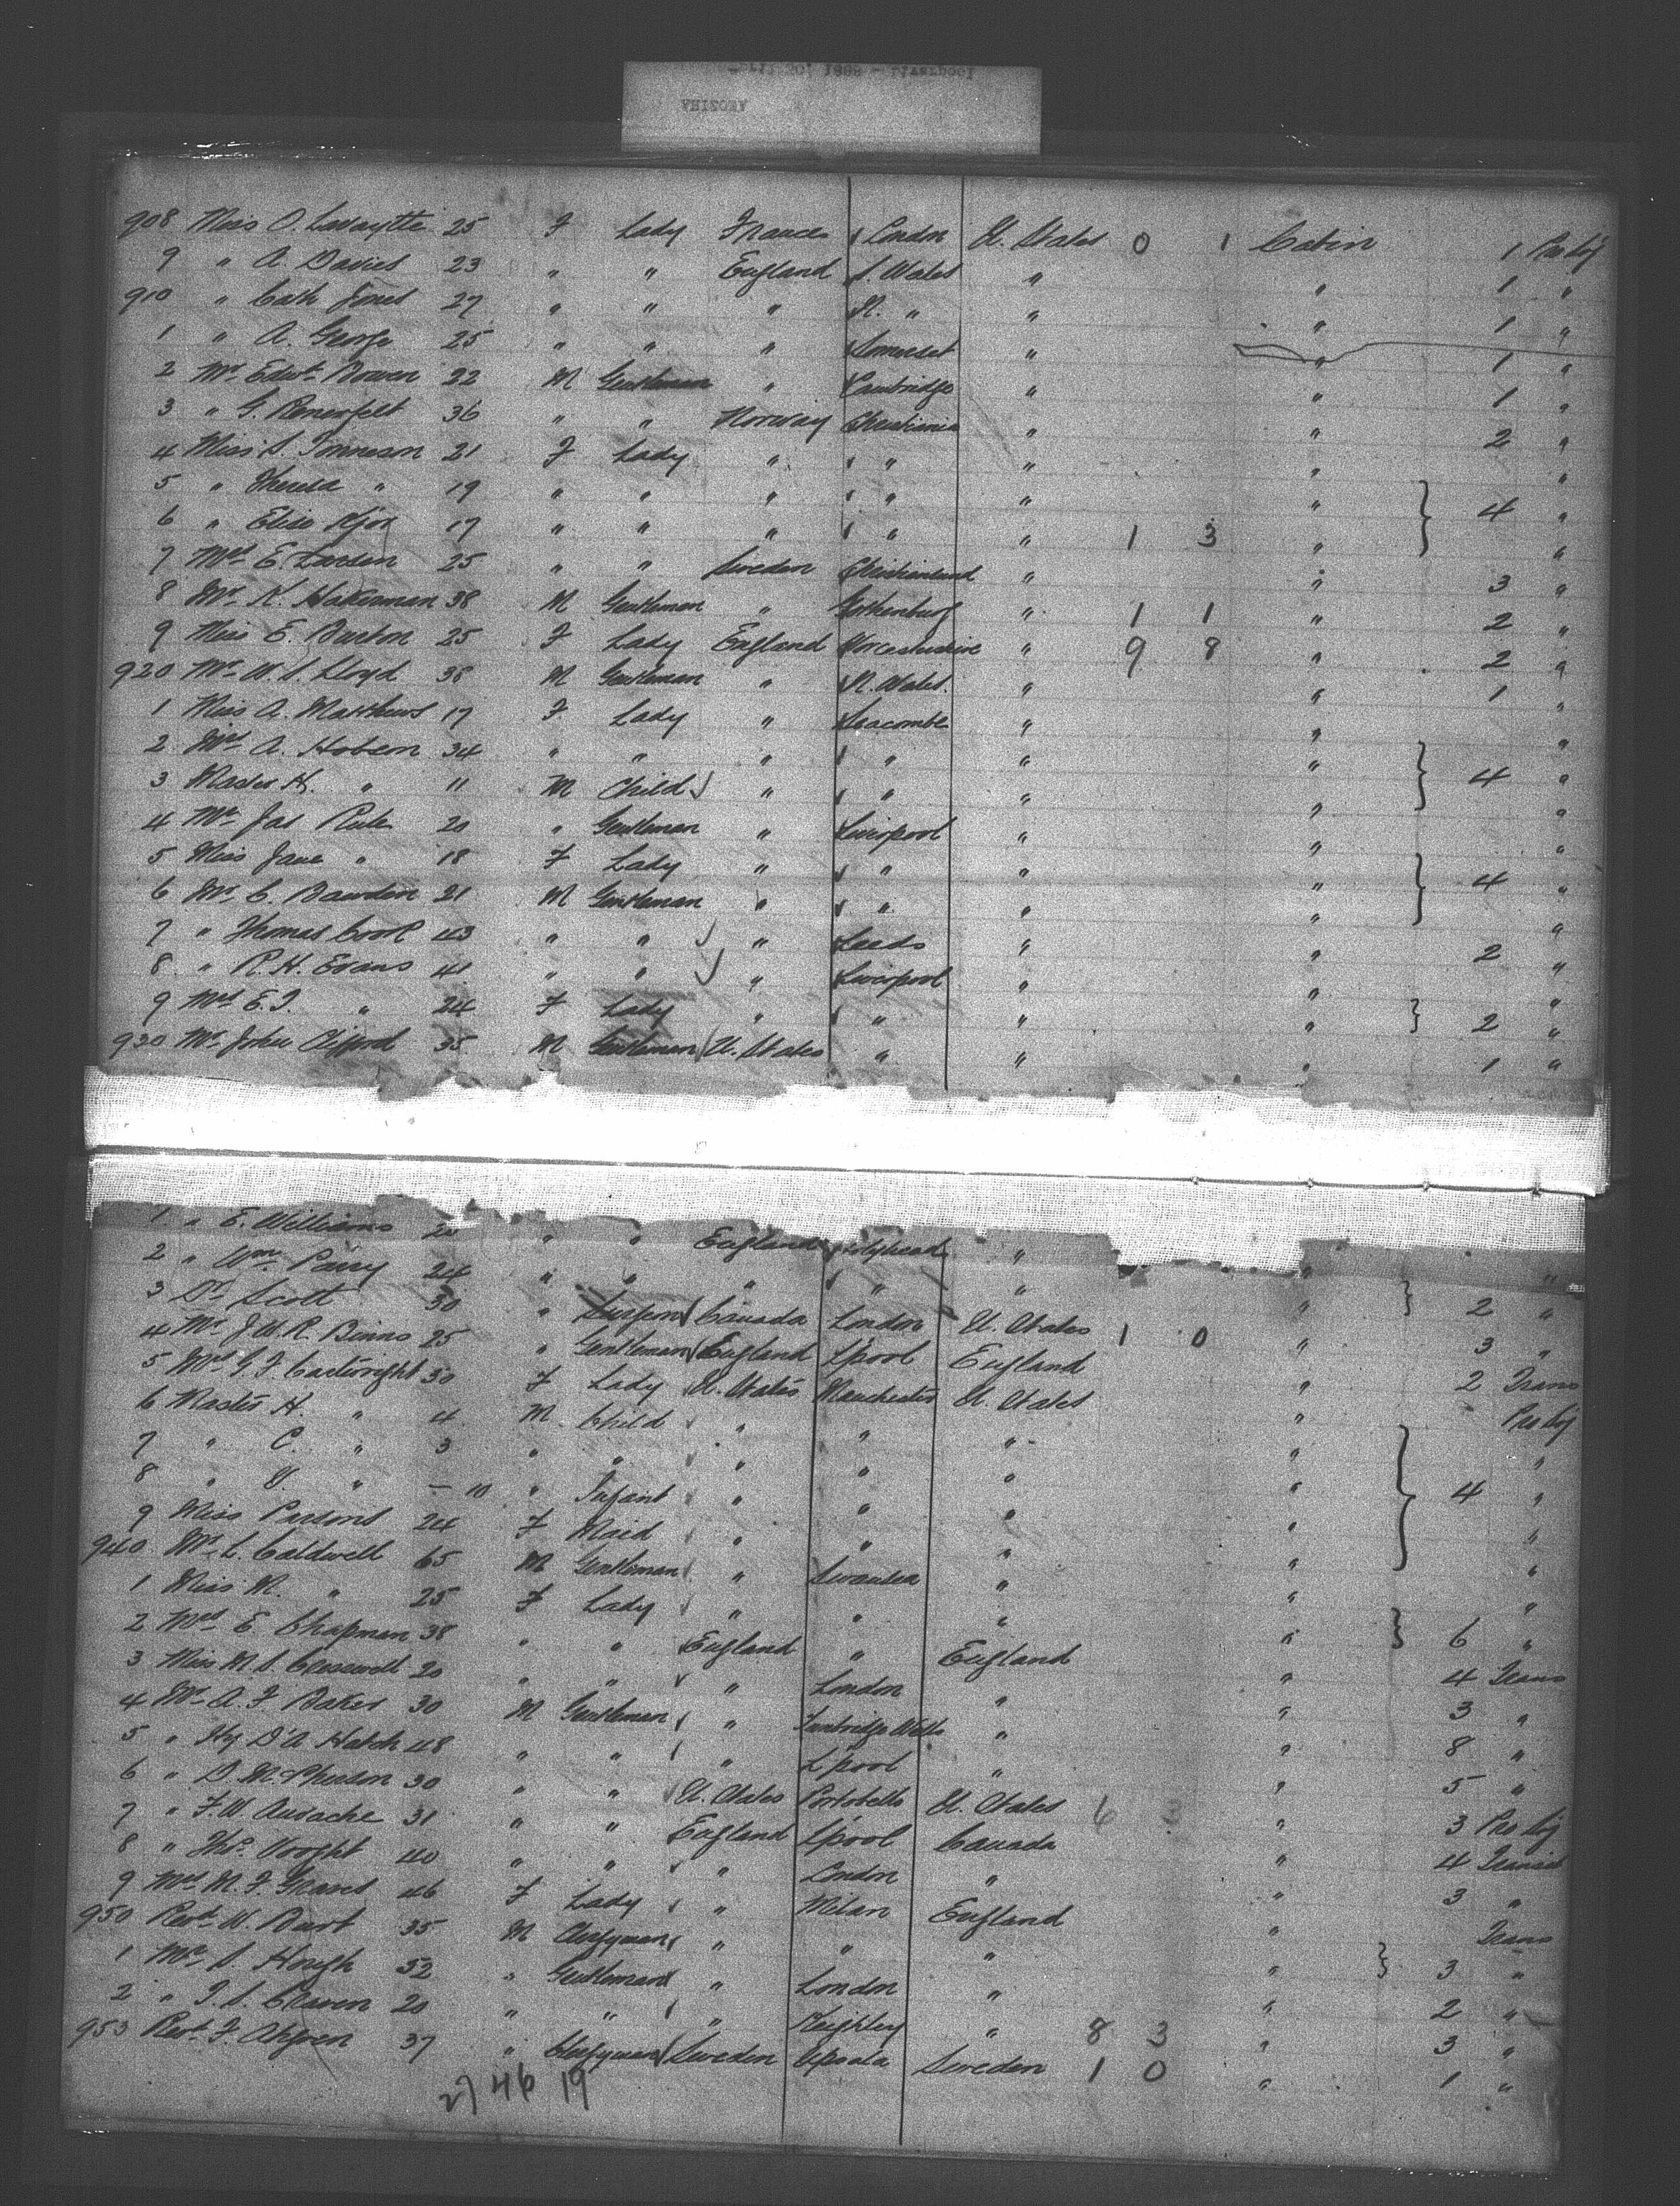 ARIZONA
908 Miss O. Lavaytte 25 F Lady France London U. States 0 1 Cabin 1 Pro Soj
9 " A. Davies 23 " " England S. Wales " " 1 "
910 " Cath Jones 27 " " " N. " " " 1 "
1 " A. George 25 " " " Somerset " " 1 "
2 Mr Edwd Bowen 22 M Gentleman " Cambridge " " 1 "
3 " G. 36 " " Norway Christiania " " 2 "
4 Miss S. Tonneson 21 F Lady " " " " "
5 " Theresa " 19 " " " " " " 4 "
6 " Elise 17 " " " " " 1 3 " "
7 Mrs E. Larsen 25 " " Sweden Christiansand " " 3 "
8 Mr K. Hakerman 38 M Gentleman " Gothenburg " 1 1 " 2 "
9 Miss E. Burton 25 F Lady England Worcestershire " 9 8 " 2 "
920 Mr W. S. Lloyd 38 M Gentleman " N. Wales. " " 1 "
1 Miss A. Matthews 17 F Lady " Seacombe " " "
2 Mrs A. Hobson 34 " " " " " " 4 "
3 Master H. " 11 M Child " " " " "
4 Mr Jas 20 " Gentleman " Liverpool " " "
5 Miss Jane " 18 F Lady " " " " 4 "
6 Mr C. Bawden 21 M Gentleman " " " " "
7 " Thomas Cook 43 " " " Leeds " " 2 "
8 " R. H. Evans 41 " " " Liverpool " " "
9 Mrs E. J. " 24 F Lady " " " " 2 "
930 Mr John Clifford 35 M Gentleman U. States " " " 1 "
1 " E. Williams 20 " " England Holyhead " " "
2 " Wm Parry 24 " " " " " " 2 "
3 Dr Scott 30 " Surgeon Canada London U. States 1 0 " 3 "
4 Mr J. W. R. Binns 25 " Gentleman England L'pool England " 2 Trans
5 Mrs G. F. Cartwright 30 F Lady U. States Manchester U. States " Pro Soj
6 Master H. " 4 M Child " " " " "
7 " C. " 3 " " " " " " 4 "
8 " " — 10 " Infant " " " " "
9 Miss Parsons 24 F Maid " " " " "
940 Mr L. Caldwell 65 M Gentleman " Swansea " " "
1 Miss M. " 25 F Lady " " " " 6 "
2 Mrs E Chapman 38 " " England " England " 4 Trans
3 Miss M. S. Cresswell 20 " " " London " " 3 "
4 Mr A. F. Baker 30 M Gentleman " Tunbridge Wells " " 8 "
5 " Hy D'A Hatch 48 " " " L'pool " " 5 "
6 " D. McPherson 30 " " U. States Portobello U. States 6 3 " 3 Pro Soj
7 " F. W. 31 " " England L'pool Canada " 4 Transit
8 " Thos. 40 " " " London " " 3 "
9 Mrs M. F. Graves 46 F Lady " Milan England " Trans
950 Revd W. Burt 35 M Clergyman " " " " 3 "
1 Mr S. Hough 52 " Gentleman " London " " 2 "
2 " J. S. Craven 20 " " " Keighley " 8 3 " 3 "
953 Revd F. Ahgren 37 " Clergyman Sweden Upsala Sweden 1 0 " 1 "
27 46 19